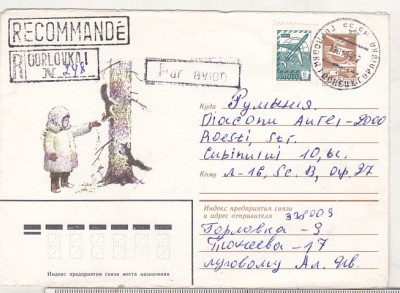 RECOMMANDÉ
R GORLOVKA 1
N 248
Par avion
Куда Румыния.
Diaconu Aurel-2000
Str.
10, bl.
Кому Л-16, Sc. B,
Индекс предприятия связи
и адрес отправителя 338003
Горловка - 3
Тютчева - 17
Луговому Ал.
Индекс предприятия связи места назначения